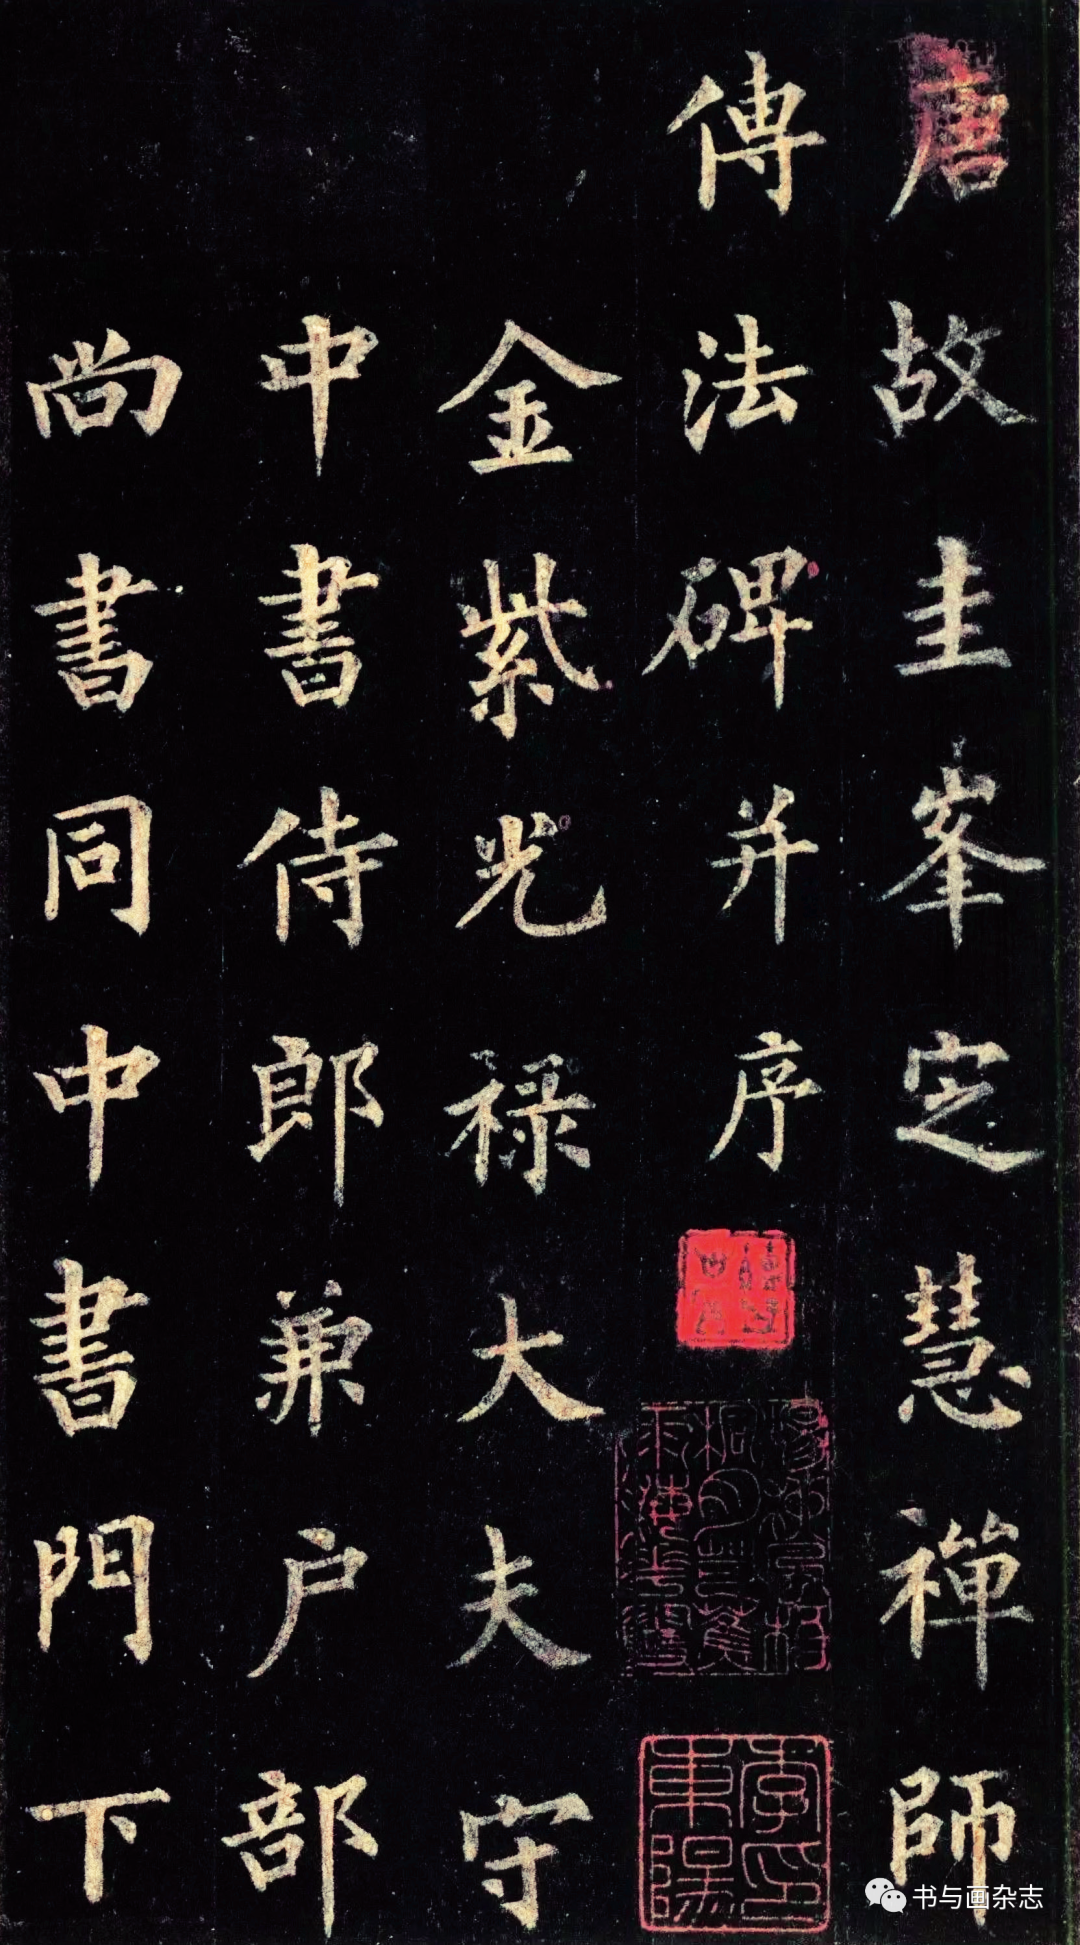 唐故圭峯定慧禪師
傳法碑并序
金紫光禄大夫守
中書侍郎兼户部
尚書同中書門下
李印東陽
书与画杂志